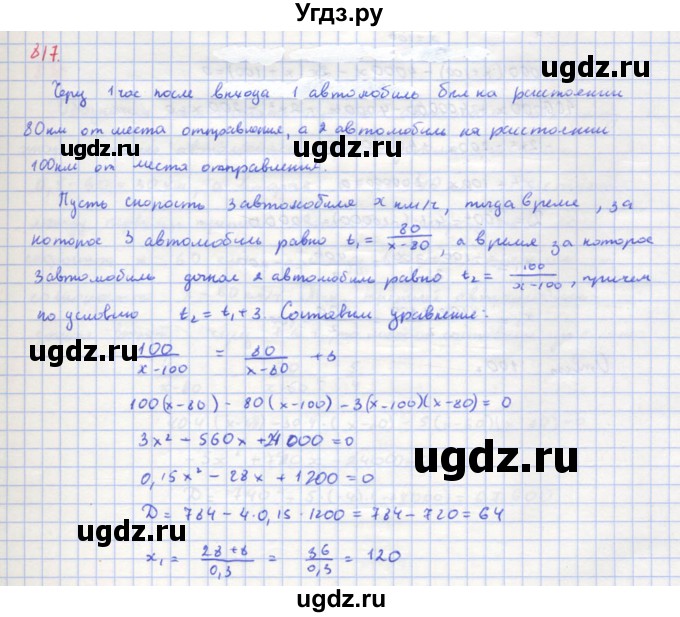 Угдз.ру
817.
Через 1 час после выхода 1 автомобиль был на расстоянии
80км от места отправления, а 2 автомобиль на расстоянии
100км от места отправления.
Пусть скорость 3 автомобиля x км/ч, тогда время, за
которое 3 автомобиль равно t₁ = 80/(x-80), а время за которое
3 автомобиль догнал 2 автомобиль равно t₂ = 100/(x-100), причем
по условию t₂ = t₁ + 3. Составим уравнение:
100/(x-100) = 80/(x-80) + 3
100(x-80) - 80(x-100) - 3(x-100)(x-80) = 0
3x² - 560x + 24000 = 0
0,15x² - 28x + 1200 = 0
D = 784 - 4·0,15·1200 = 784 - 720 = 64
x₁ = (28+8)/0,3 = 36/0,3 = 120
ugdz.ru
ugdz.ru
ugdz.ru
ugdz.ru
ugdz.ru
ugdz.ru
ugdz.ru
ugdz.ru